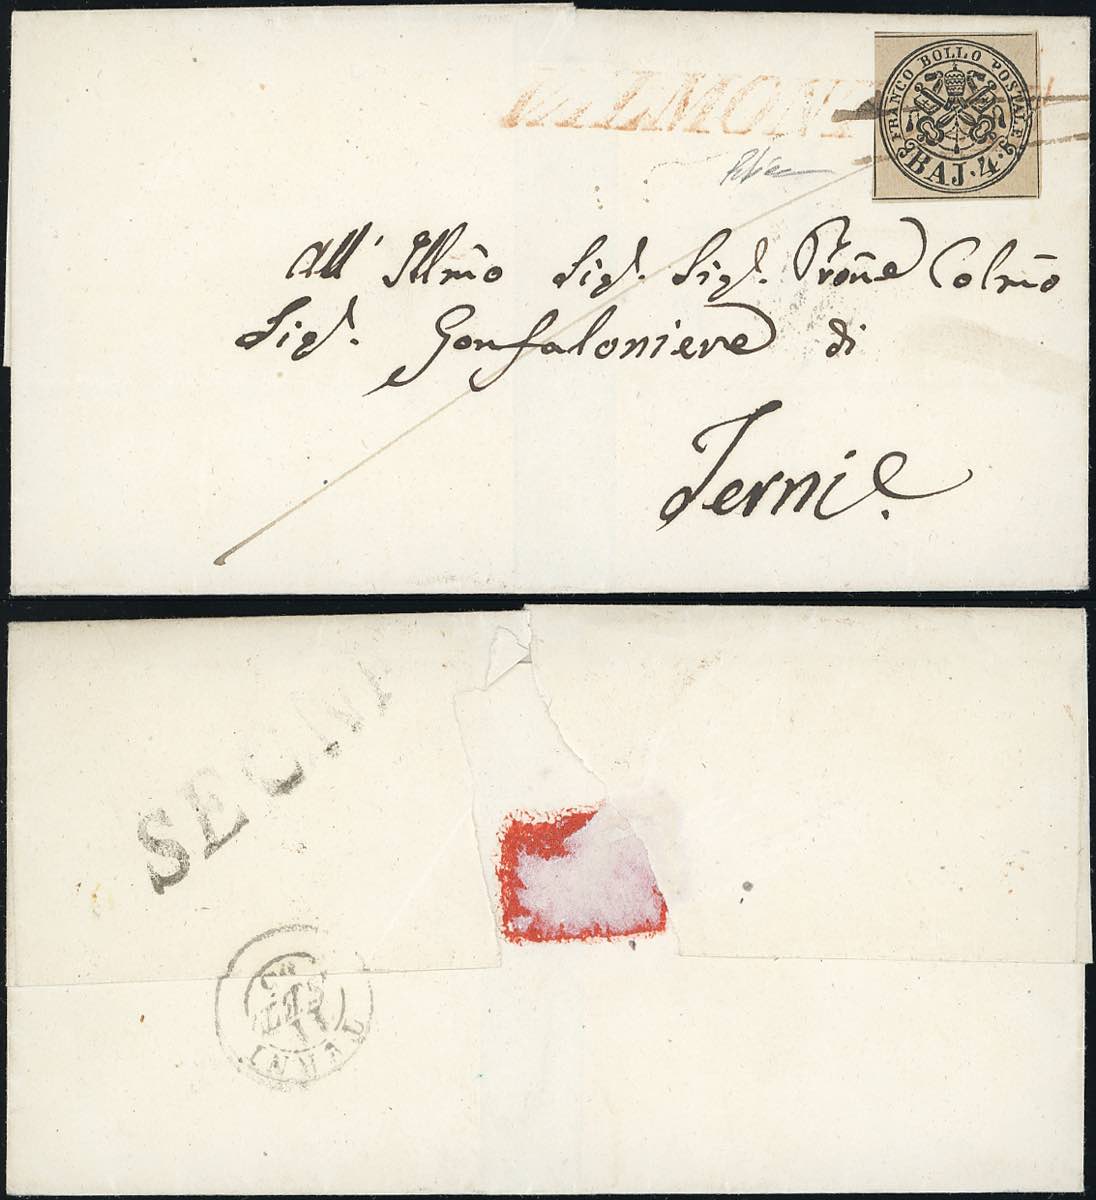 FRANCO BOLLO POSTALE
BAJ. 4.
All' Illmo Sigr. Sigr. Prone Colmo
Sigr. Gonfaloniere di
Terni
SEGNI
TERNI
11
SET